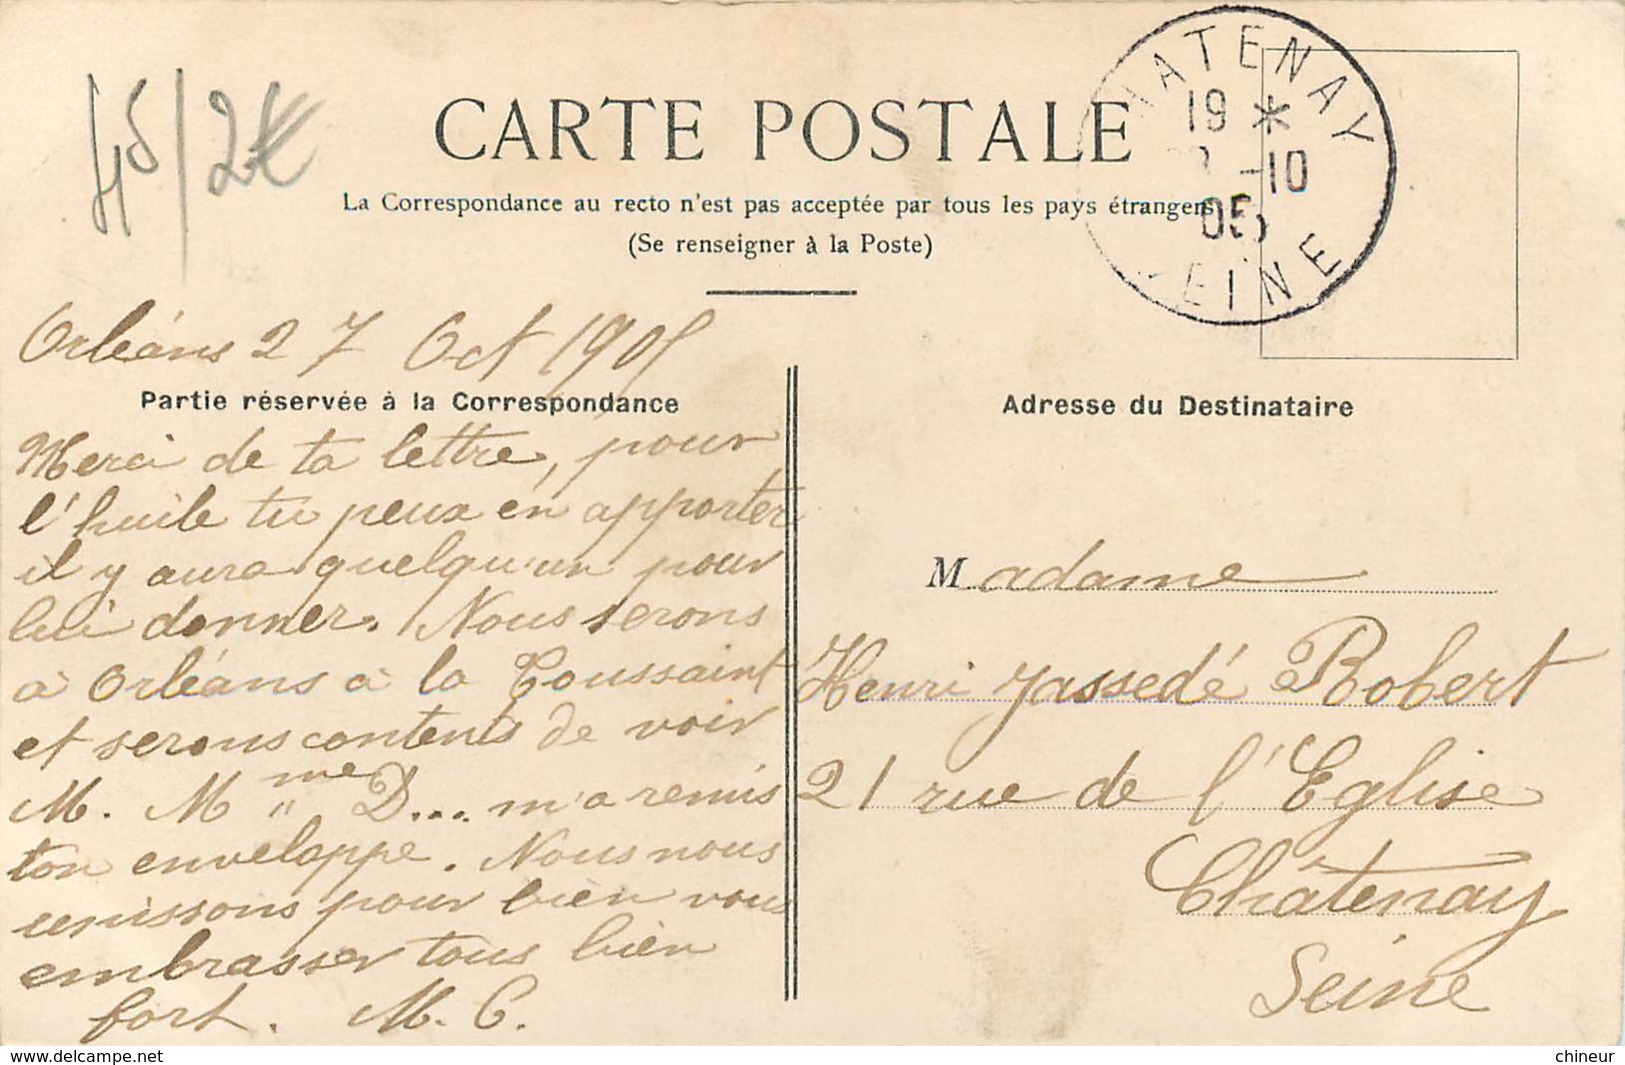 45/2€
CARTE POSTALE
La Correspondance au recto n'est pas acceptée par tous les pays étrangers
(Se renseigner à la Poste)
HATENAY
19 *
-10
05
EINE
Orléans 27 Oct 1905
Partie réservée à la Correspondance
Merci de ta lettre, pour
l'huile tu peux en apporter
il y aura quelqu'un pour
lui donner. Nous serons
à Orléans à la Toussaint
et serons contents de voir
M. Mme D... m'a remis
ton enveloppe. Nous nous
unissons pour bien vous
embrasser tous bien
fort. M. C.
Adresse du Destinataire
Madame
Henri Jassedé Robert
21 rue de l'Eglise
Châtenay
Seine
delcampe.net
chineur